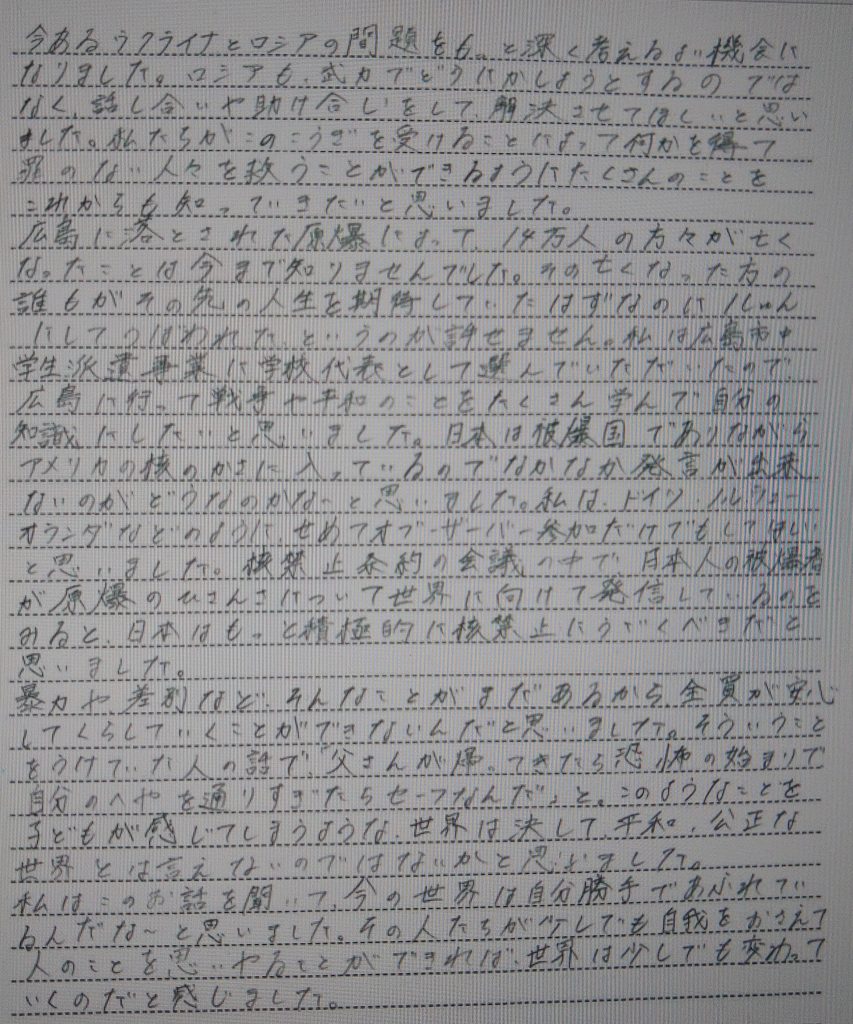 今あるウクライナとロシアの問題をもっと深く考えるよい機会に
なりました。ロシアも、武力でどうにかしようとするのでは
なく、話し合いや助け合いをして解決させてほしいと思い
ました。私たちがこのこうざを受けることによって何かを得て
罪のない人々を救うことができるようにたくさんのことを
これからも知っていきたいと思いました。
広島に落とされた原爆によって、14万人の方々が亡く
なったことは今まで知りませんでした。その亡くなった方の
誰もがその先の人生を期待していたはずなのに1しゅん
にしてうばわれた、というのが許せません。私は広島市中
学生派遣事業に学校代表として選んでいただいたので、
広島に行って戦争や平和のことをたくさん学んで自分の
知識にしたいと思いました。日本は被爆国でありながら
アメリカの核のかさに入っているのでなかなか発言が出来
ないのがどうなのかな～と思いました。私は、ドイツ、ノルウェー
オランダなどのように、せめてオブザーバー参加だけでもしてほしい
と思いました。核禁止条約の会議の中で、日本人の被爆者
が原爆のひさんさについて世界に向けて発信しているのを
みると、日本はもっと積極的に核禁止にうごくべきだと
思いました。
暴力や差別など、そんなことがまだあるから全員が安心
してくらしていくことができないんだと思いました。そういうこと
をうけていた人の話で、「父さんが帰ってきたら恐怖の始まりで
自分のへやを通りすぎたらセーフなんだ」と。このようなことを
子どもが感じてしまうような、世界は決して、平和、公正な
世界とは言えないのではないかと思いました。
私はこのお話を聞いて、今の世界は自分勝手であふれてい
るんだな～と思いました。その人たちが少しでも自我をおさえて
人のことを思いやることができれば、世界は少しでも変わって
いくのだと感じました。